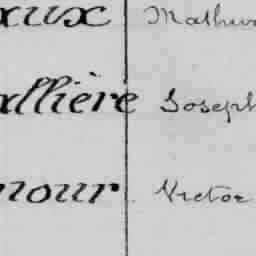 aux Mathur
allière Joseph
mour Victor